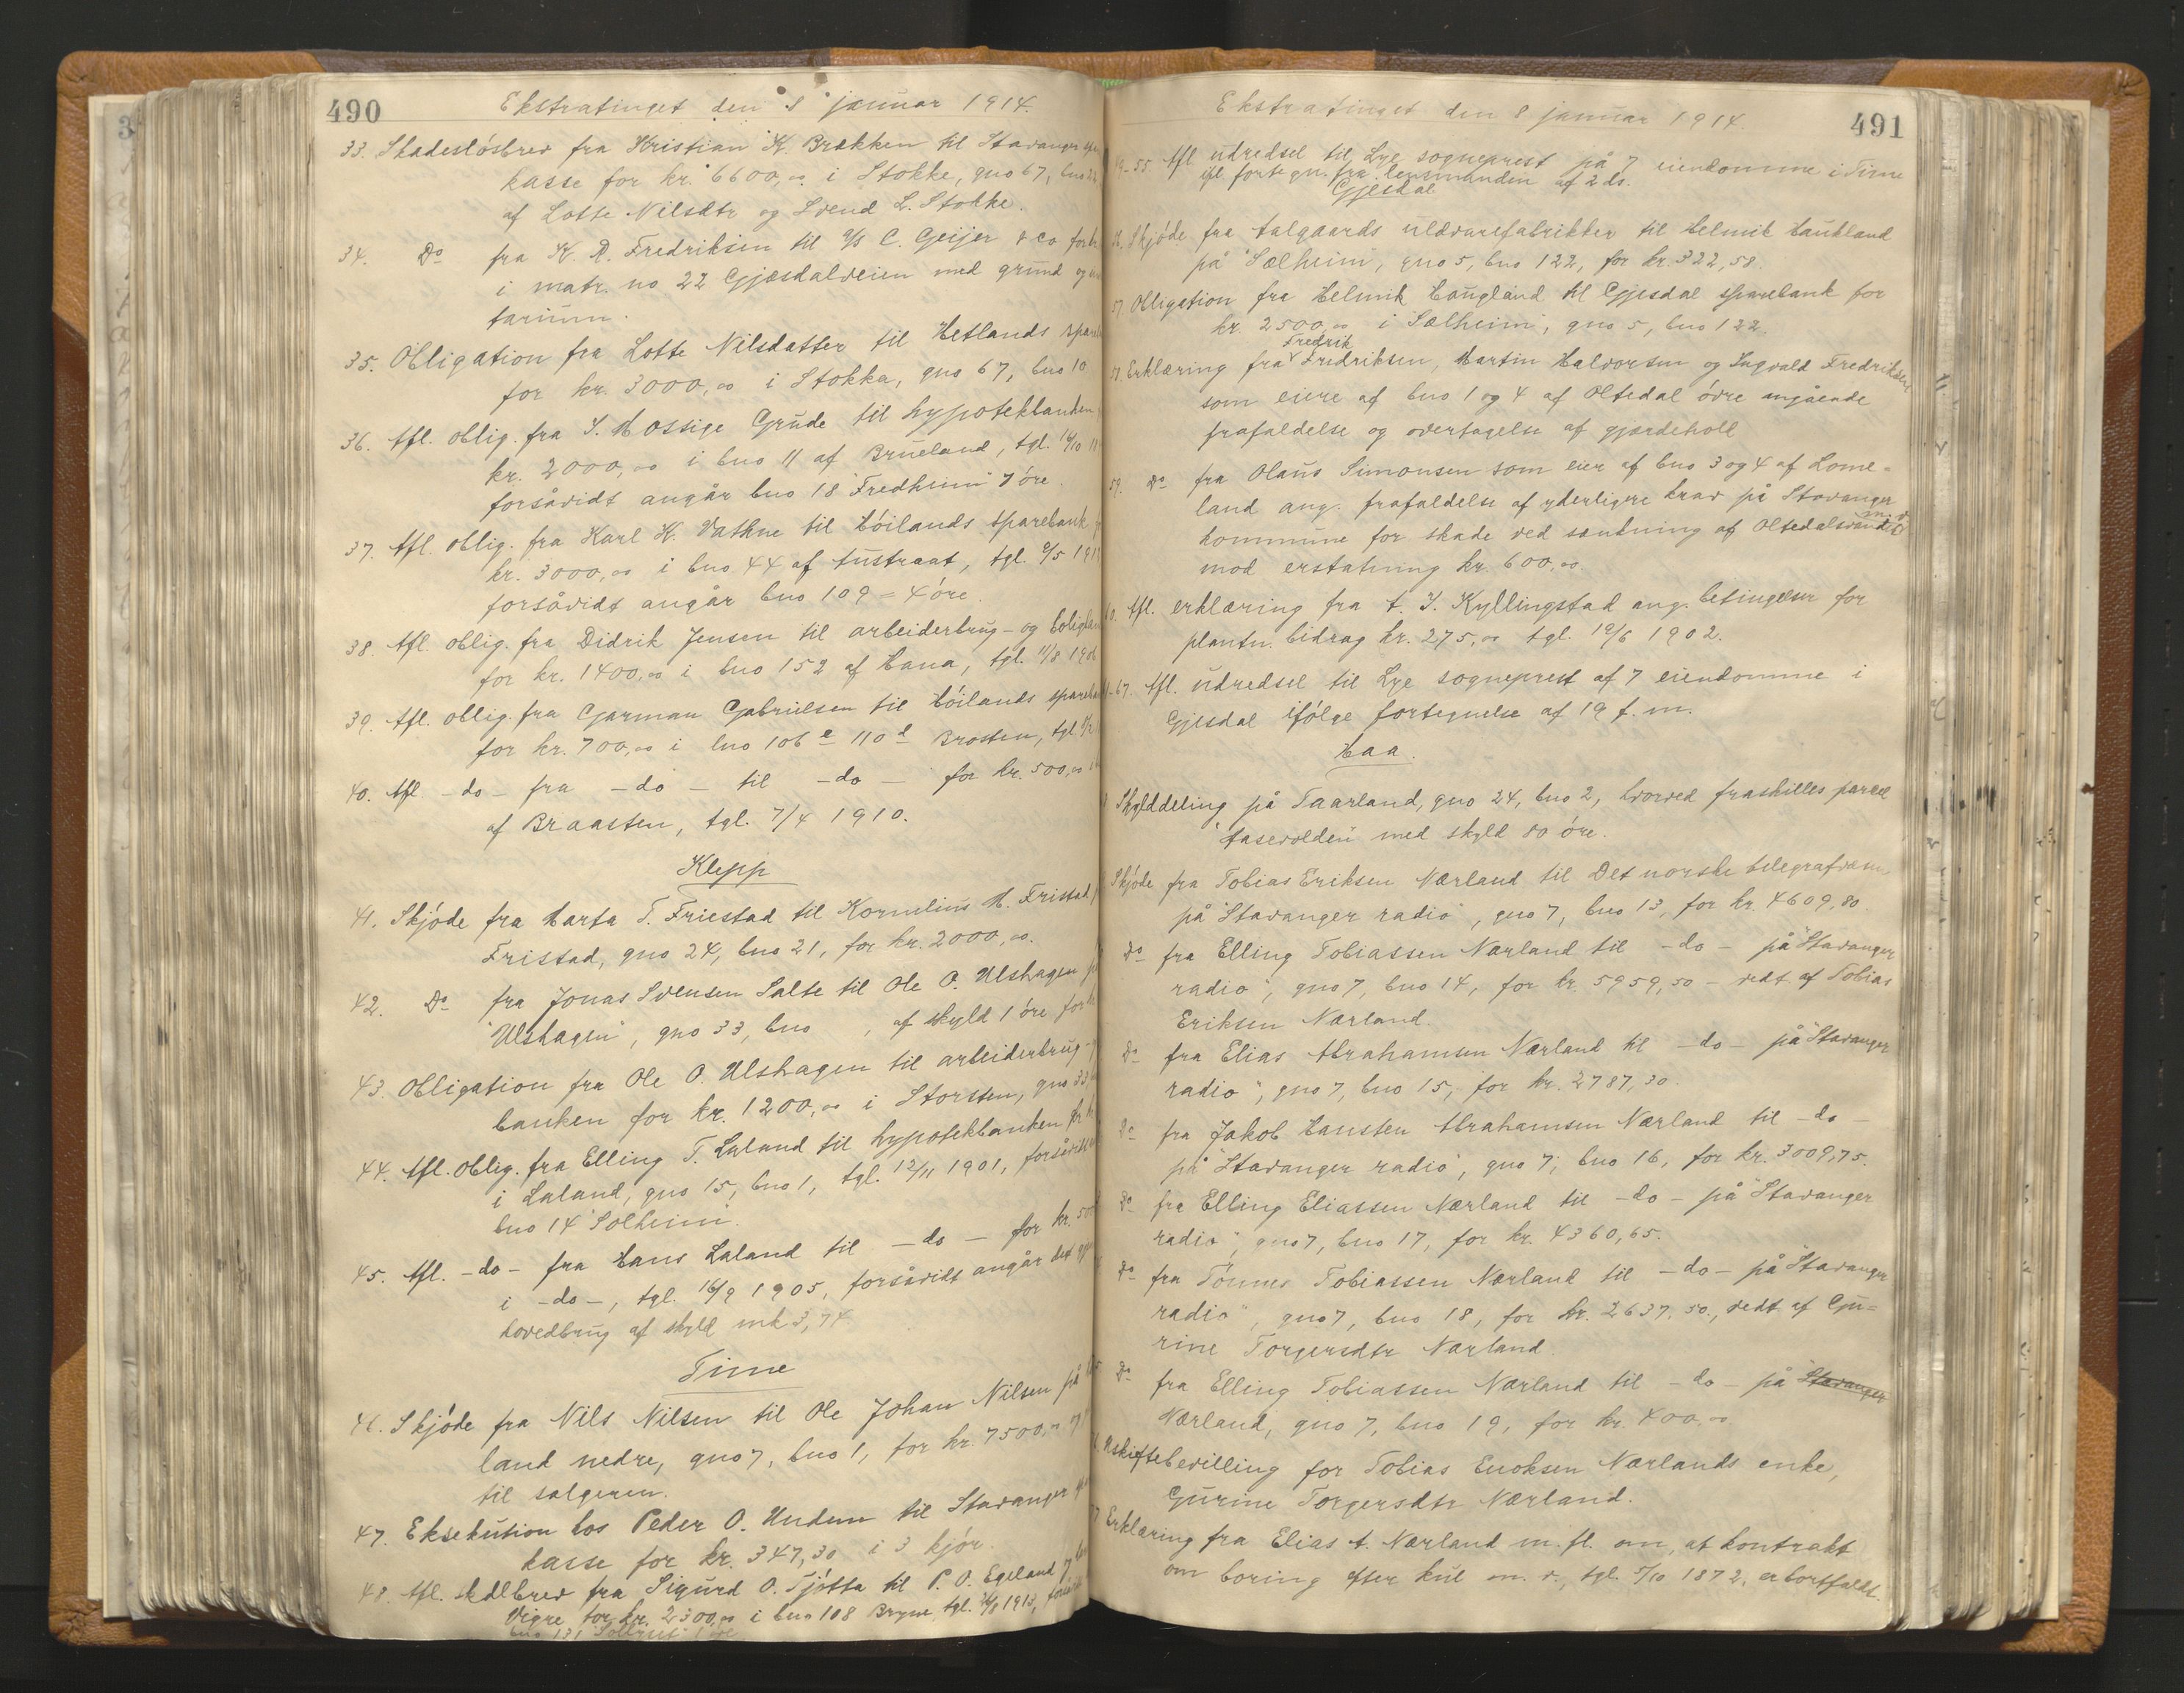 490
Ekstratinget den 8 januar 1914.
33. Skadesløsbrev fra Kristian K. Brekken til Stavanger
kasse for kr. 6600,00 i Stokke, gno 67, bno
af Lotte Nilsdtr og Svend L. Stokke.
34. Do fra K. R. Fredriksen til a/s C. Geijer & co for
i matr. no 22 Gjæsdalveien med grund og
tarium.
35. Obligation fra Lotte Nilsdatter til Hetlands
for kr. 3000,00 i Stokka, gno 67, bno 10
36. Afl. oblig. fra S. Mossige Grude til hypotekbanken
kr. 2000,00 i bno 11 af Brueland, tgl. 14/10
forsåvidt angår bno 18 "Fredheim" 7 øre.
37. Afl. oblig. fra Karl K. Vathne til Høilands sparebank
kr. 3000,00 i bno 44 af Austraat, tgl.
forsåvidt angår bno 109 = 4 øre.
38. Afl. oblig. fra Didrik Jensen til arbeiderbrug- og
for kr. 1400,00 i bno 152 af Hana, tgl. 11/8
39. Afl. oblig. fra Garman Gabrielsen til Høilands
for kr. 700,00 i bno 106 e 110 d Brosten, tgl
40. Afl -do- fra -do- til -do- for kr. 500,00
af Braasten, tgl. 7/4 1910.
Klepp
41. Skjøde fra Marta T. Friestad til Kornelius M. Fristad
Fristad, gno 24, bno 21, for kr. 2000,00.
42. Do fra Jonas Svensen Salte til Ole O. Ulshagen
"Ulshagen", gno 33, bno , af skyld 1 øre for
43. Obligation fra Ole O. Ulshagen til arbeiderbrug-
banken for kr. 1200,00 i Storsten, gno 33,
44. Afl. oblig. fra Elling T. Laland til hypotekbanken
i Laland, gno 15, bno 1, tgl. 12/11 1901, forsåvidt
bno 14 "Solheim".
45. Afl. -do- fra Hans Laland til -do- for kr.
i -do-, tgl. 16/9 1905, forsåvidt angår det
hovedbrug af skyld mk 3,74
Time
46. Skjøde fra Nils Nilsen til Ole Johan Nilsen på
land nedre, gno 7, bno 1, for kr. 7500,00
til sælgeren.
47. Eksekution hos Peder O. Undem til Stavanger
kasse for kr. 347,30 i 3 kjør.
48. Afl. skdlbrev fra Sigurd O. Tjøtta til P. O. Egeland
Vigre for kr. 2300,00 i bno 108 Bryne, tgl. 1913,
bno 131
491
Ekstratinget den 8 januar 1914.
49-55. Afl. udredsel til Lye sogneprest på 7 eiendomme i Time
ifl. fortegn. fra lensmanden af 2 ds.
Gjesdal
56. Skjøde fra Aalgaards uldvarefabrikker til Helmik Haukland
på "Sælheim", gno 5, bno 122, for kr. 322,58.
57. Obligation fra Helmik Haugland til Gjesdal sparebank for
kr. 2500,00 i "Sælheim", gno 5, bno 122.
Fredrik
58. Erklæring fra Fredriksen, Martin Halvorsen og Ingvald Fredriksen
som eiere af bno 1 og 4 af Oltedal øvre angående
frafaldelse og overtagelse af gjærdehold
59. Do fra Olaus Simonsen som eier af bno 3 og 4 af Lome-
land ang. frafaldelse af yderligere krav på Stavanger
kommune for skade ved sænkning af Oltedalsvandet m. v.
mod erstatning kr. 600,00.
60. Afl. erklæring fra A. S. Kyllingstad ang. betingelser for
plantn. bidrag kr. 275,00 tgl. 19/6 1902.
61-67. Afl. udredsel til Lye sogneprest af 7 eiendomme i
Gjesdal ifølge fortegnelse af 19 f. m.
Haa.
Skylddeling på Taarland, gno 24, bno 2, hvorved fraskilles parcel
"Aasevolden" med skyld 80 øre.
Skjøde fra Tobias Eriksen Nærland til Det norske telegrafvæsen
på "Stavanger radio", gno 7, bno 13, for kr. 4609,80.
Do fra Elling Tobiassen Nærland til -do- på "Stavanger
radio", gno 7, bno 14, for kr. 5959,50 - vedt. af Tobias
Eriksen Nærland.
Do fra Elias Abrahamsen Nærland til -do- på "Stavanger
radio", gno 7, bno 15, for kr. 2787,30.
Do fra Jakob Hansten Abrahamsen Nærland til -do-
på "Stavanger radio", gno 7, bno 16, for kr. 3009,75.
Do fra Elling Eliassen Nærland til -do- på "Stavanger
radio", gno 7, bno 17, for kr. 4360,65.
Do fra Tønnes Tobiassen Nærland til -do- på "Stavanger
radio", gno 7, bno 18, for kr. 2637,50., vedt. af Gu=
rine Torgersdtr Nærland.
Do fra Elling Tobiassen Nærland til -do- på "Stavanger
Nærland, gno 7, bno 19, for kr. 400,00.
Uskiftebevilling for Tobias Enoksen Nærlands enke,
Gurine Torgersdtr Nærland.
Erklæring fra Elias A. Nærland m. fl. om, at kontrakt
om boring efter kul m. v., tgl. 5/10 1872, er bortfaldt.